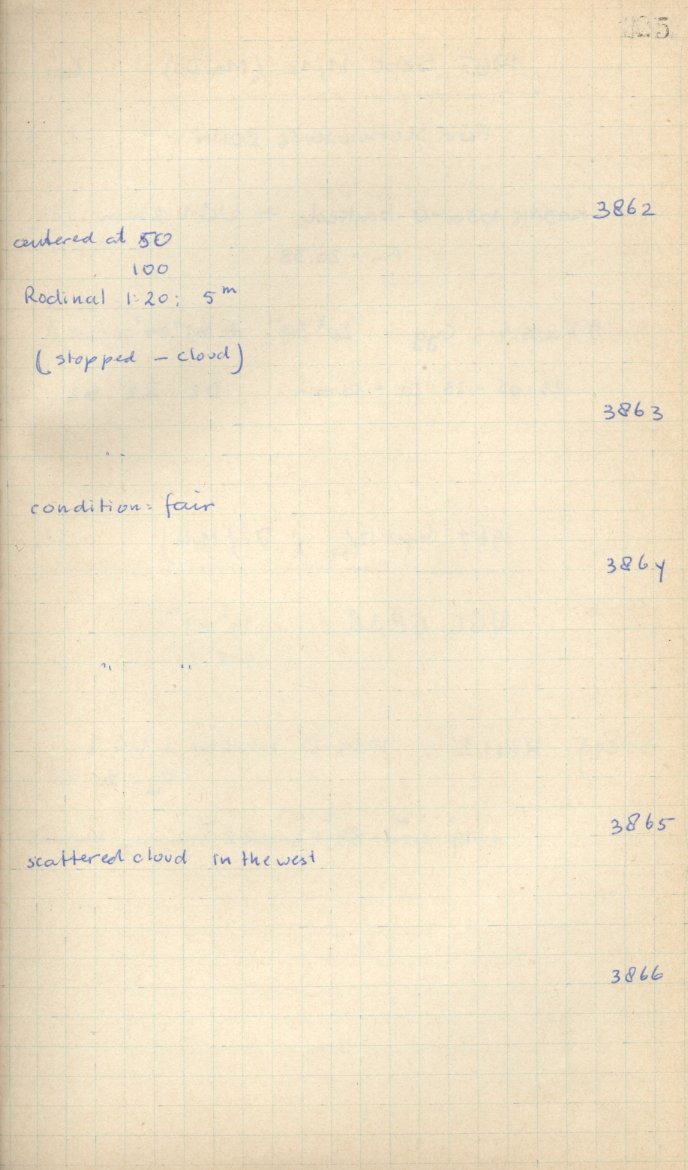 3862
centered at 50
100
Rodinal 1:20; 5m
(stopped – cloud)
3863
"
condition: fair
3864
" "
3865
scattered cloud in the west
3866